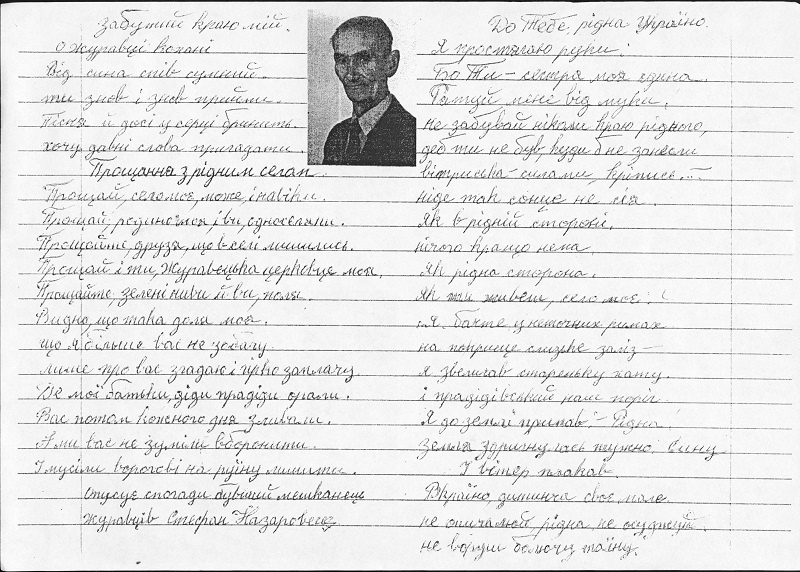 Забутий краю мій.
О Журавці кохані
Від сина спів сумний.
ти знов і знов прийми.
Пісня й досі у серці бринить.
хочу давні слова пригадати.
Прощання з рідним селом.
Прощай, село моє, може, і навіки.
Прощай, родино моя і ви, односельчани.
Прощайте, друзя, що в селі лишились.
Прощай і ти, Журавецька церковце моя.
Прощайте, зелені ниви й ви, поля.
Видно, що така доля моя.
що я більше вас не зобачу
лише про вас згадаю і гірко заплачу
Де мої батьки, діди прадіди орали.
Вас потом кожного дня зливали.
А ми вас не зуміли оборонити.
І мусіли ворогові на руїну лишити.
спогади бувший мешканець
Журавців Стефан Назаровець
До Тебе, рідна Україно.
Я простягаю руки!
Бо Ти – сестра моя єдина.
Рятуй мене від муки.
не забувай ніколи краю рідного,
деб ти не був, куди б не занесли
силами, кріпись...
ніде так сонце не сія.
Як в рідній стороні.
нічого кращо нема.
Як рідна сторона.
Як ти живеш, село моє!
Я бачте у неточних римах
на поприще слизьке заліз –
я звеличав стареньку хату.
і прадідівський наш поріг.
Я до землі припав – Рідна!
Земля здригнулась тужно: Сину
І вітер плакав.
Вкраїно, дитинча своє мале
не опечалюй, рідна, не осуджуй.
не воруши болючу тайну.